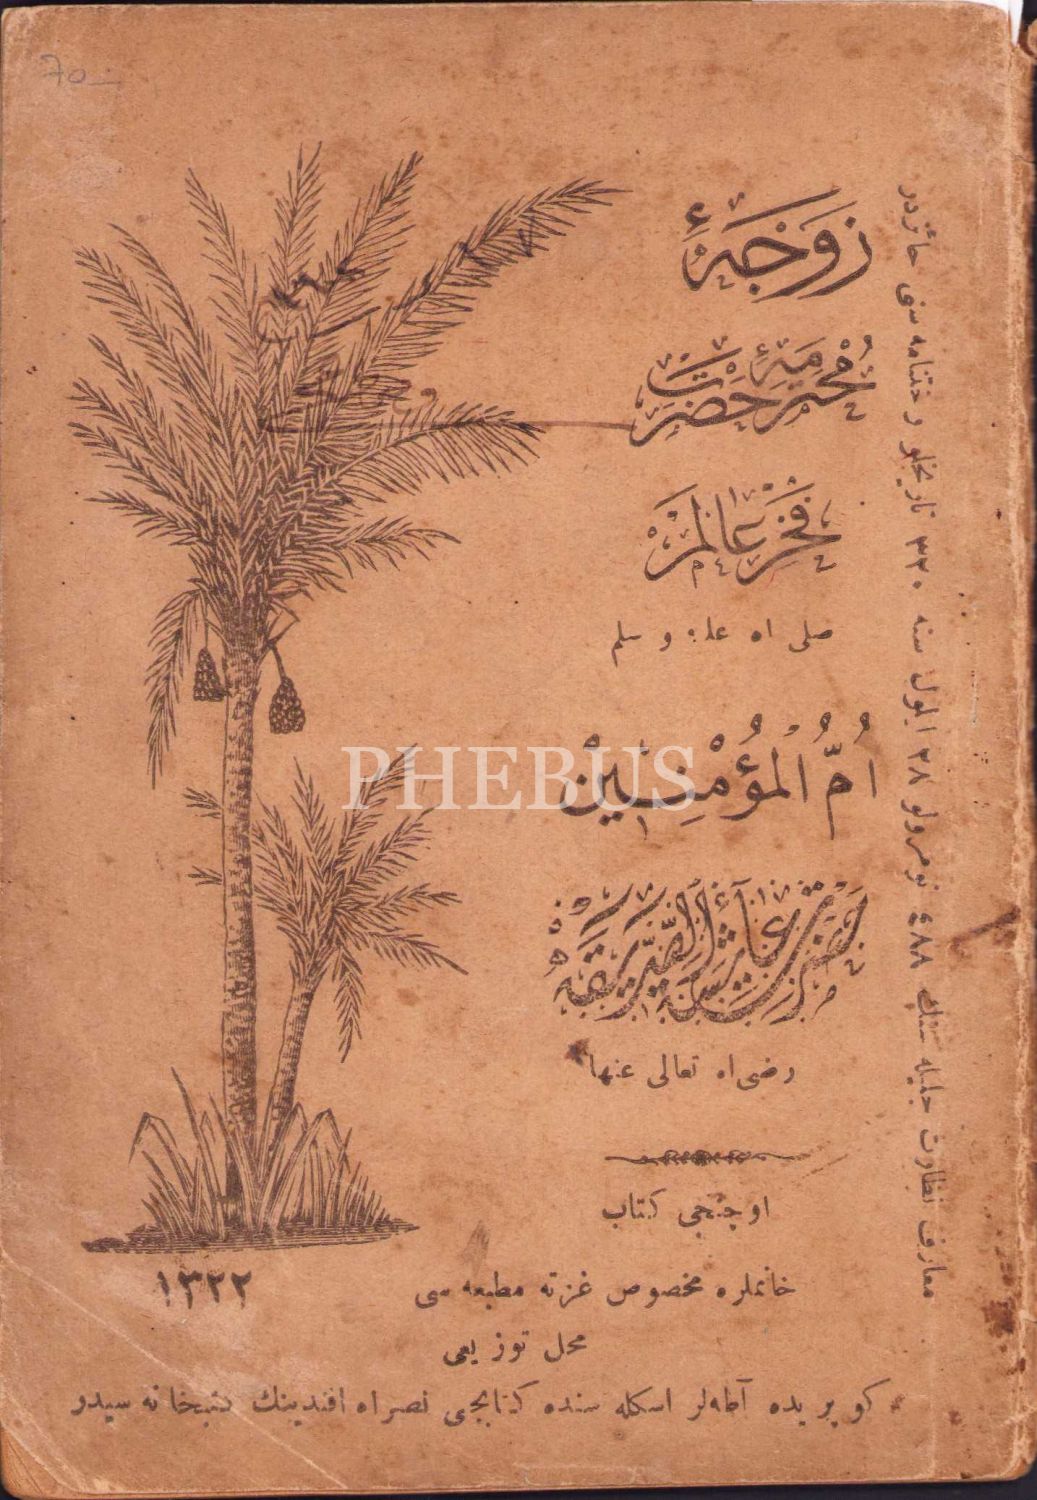 70
زَوْجَهٔ
مُحْتَرَمِیهٔ حَضْرَتِ
فَخْرِ عَالَمْ
صلی اﷲ علیه و سلم
اُمُّ الْمُؤْمِنِیْنْ
حَضْرَتِ عَائِشَةُ الصِّدِّیقَهْ
رضی اﷲ تعالی عنها
اوچنجی کتاب
خانملره مخصوص غزته مطبعه سی
١٣٢٢
محل توزیعی
کوپریده آطه‌لر اسکله سنده کتابجی نصراﷲ افندینك کتبخانه سیدر
معارف نظارت جلیله سنك ٤٨٨ نومرولو ٢٨ ایلول سنه ٣٢٠ تاریخلو رخصتنامه سنی حائزدر
PHEBUS